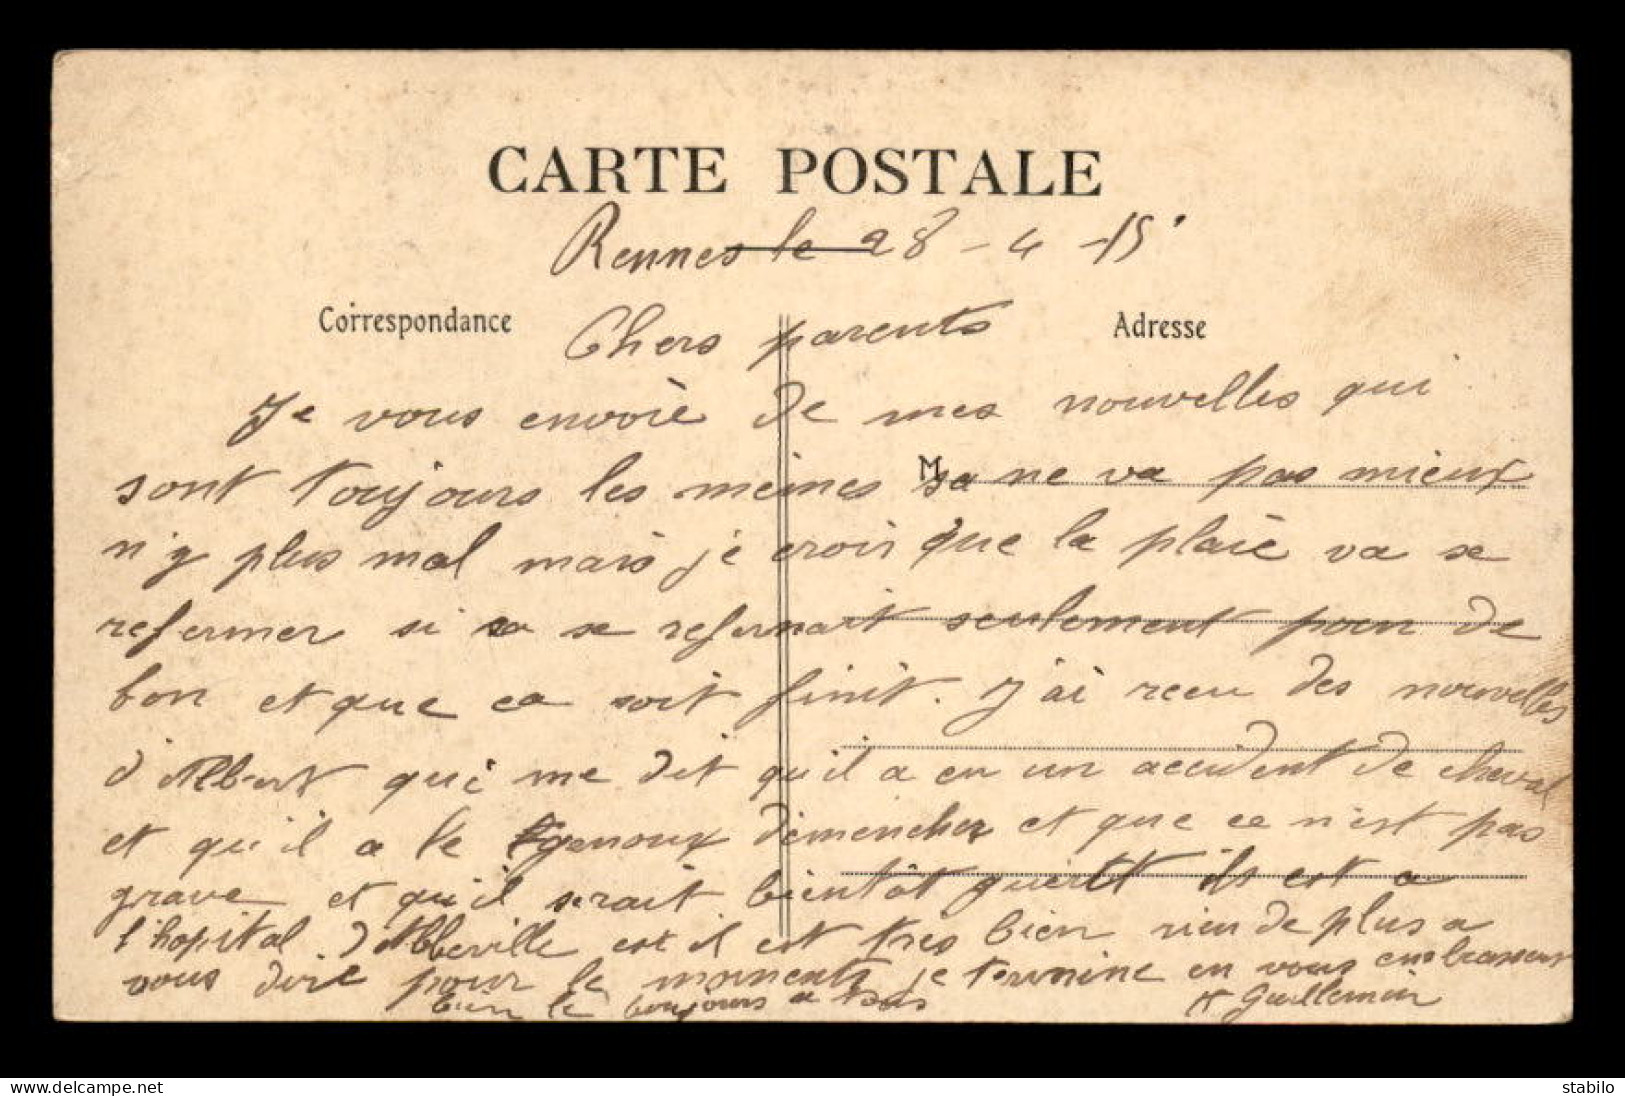 CARTE POSTALE
Rennes le 28 - 4 - 15
Correspondance
Chers parents
Adresse
Je vous envoie de mes nouvelles qui
sont toujours les mêmes sa ne va pas mieux
M
n'y plus mal mais je crois que la plaie va se
refermer si sa se refermait seulement pour de
bon et que ca soit finit. J'ai recu des nouvelles
d'Albert qui me dit qu'il a eu un accident de cheval
et qu'il a le genoux démencher et que ce n'est pas
grave et qu'il serait bientôt ils est a
l'hopital d'Abbeville et il est très bien rien de plus a
vous dire pour le moments je termine en vous embrassant
bien le boujours a tous
Guillemin
delcampe.net
stabilo